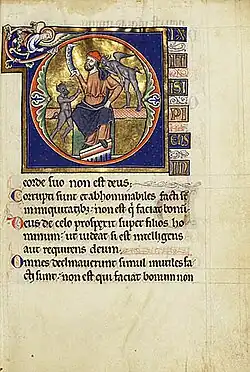 D
IX
IT
IN
SI
PI
ENS
IN
corde suo non est deus;
Corrupti sunt et abhominabiles facti st
in iniquitatibz: non est q faciat bonu
Deus de celo prospexit super filios ho
minum: ut videat si est intelligens
aut requirens deum;
Omnes declinaverunt simul inutiles fa
cti sunt: non est qui faciat bonum non